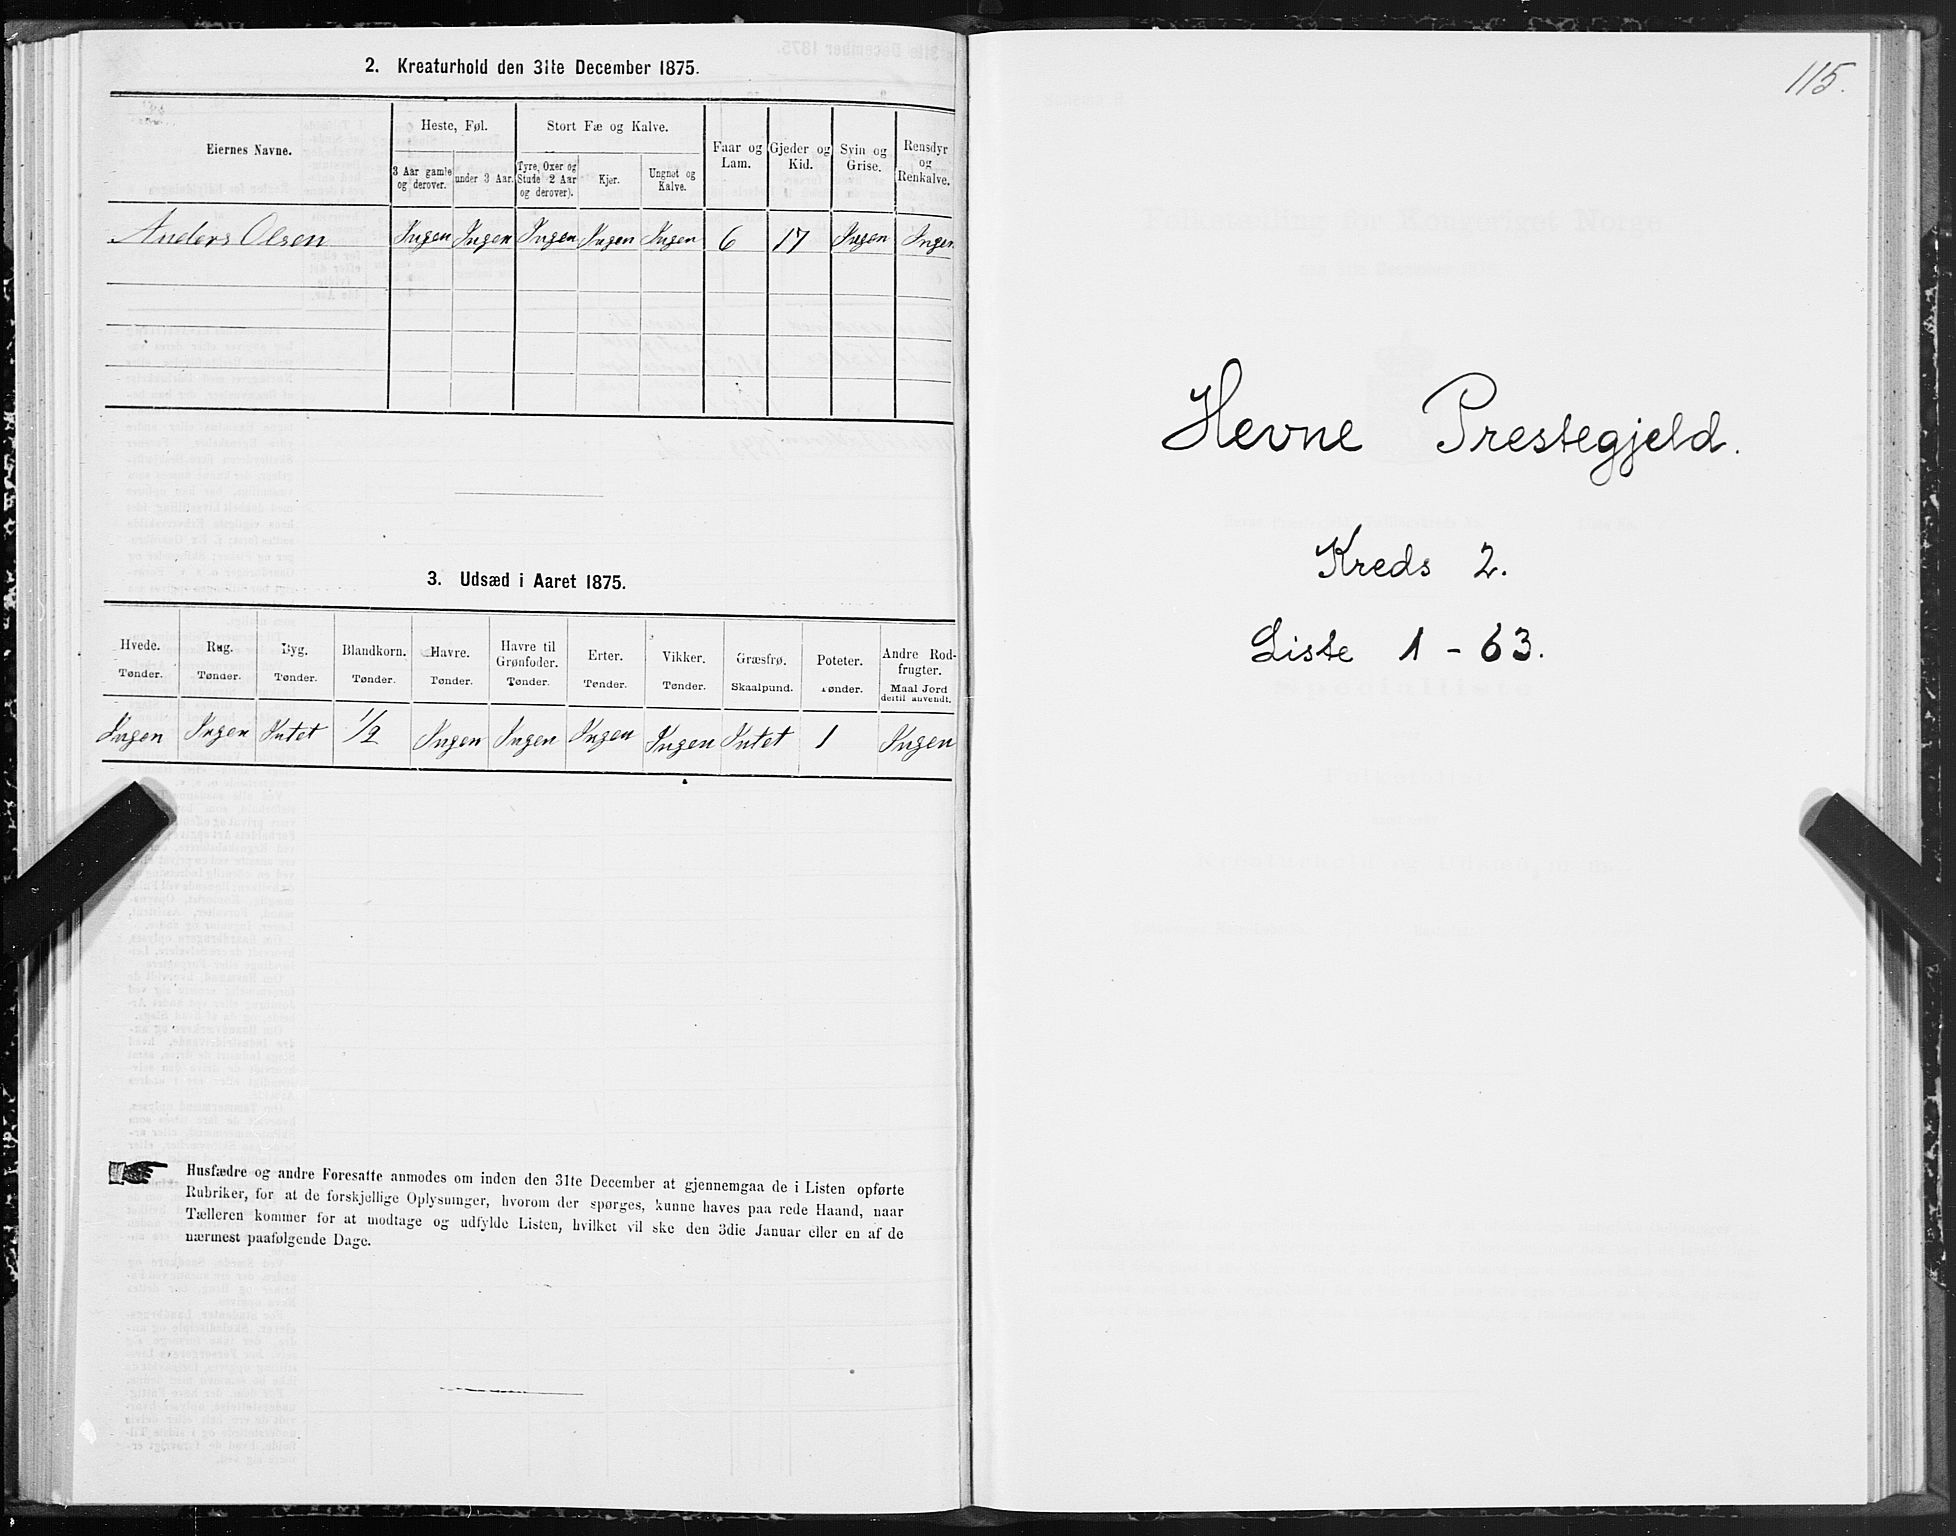 2. Kreaturhold den 31te December 1875.
Eiernes Navne.
Heste, Føl.
Stort Fæ og Kalve.
Faar og Lam.
Gjeder og Kid.
Svin og Grise.
Rensdyr og Renkalve.
3 Aar gamle og derover.
under 3 Aar.
Tyre, Oxer og Stude 2 Aar og derover).
Kjør.
Ungnøt og Kalve.
Anders Olsen Ingen Ingen Ingen Ingen Ingen 6 17 Ingen Ingen
3. Udsæd i Aaret 1875.
Hvede. Rug. Byg. Blandkorn. Havre. Havre til Grønfoder. Erter. Vikker. Græsfrø. Poteter. Andre Rodfrugter.
Tønder. Tønder. Tønder. Tønder. Tønder. Tønder. Tønder. Tønder. Skaalpund. Tønder. Maal Jord dertil anvendt.
Ingen Ingen Intet 1/2 Ingen Ingen Ingen Ingen Intet 1 Ingen
Husfædre og andre Foresatte anmodes om inden den 31te December at gjennemgaa de i Listen opførte
Rubriker, for at de forskjellige Oplysninger, hvorom der spørges, kunne haves paa rede Haand, naar
Tælleren kommer for at modtage og udfylde Listen, hvilket vil ske den 3die Januar eller en af de
nærmest paafølgende Dage.
115.
Hevne Prestegjeld.
Kreds 2.
Liste 1 - 63.